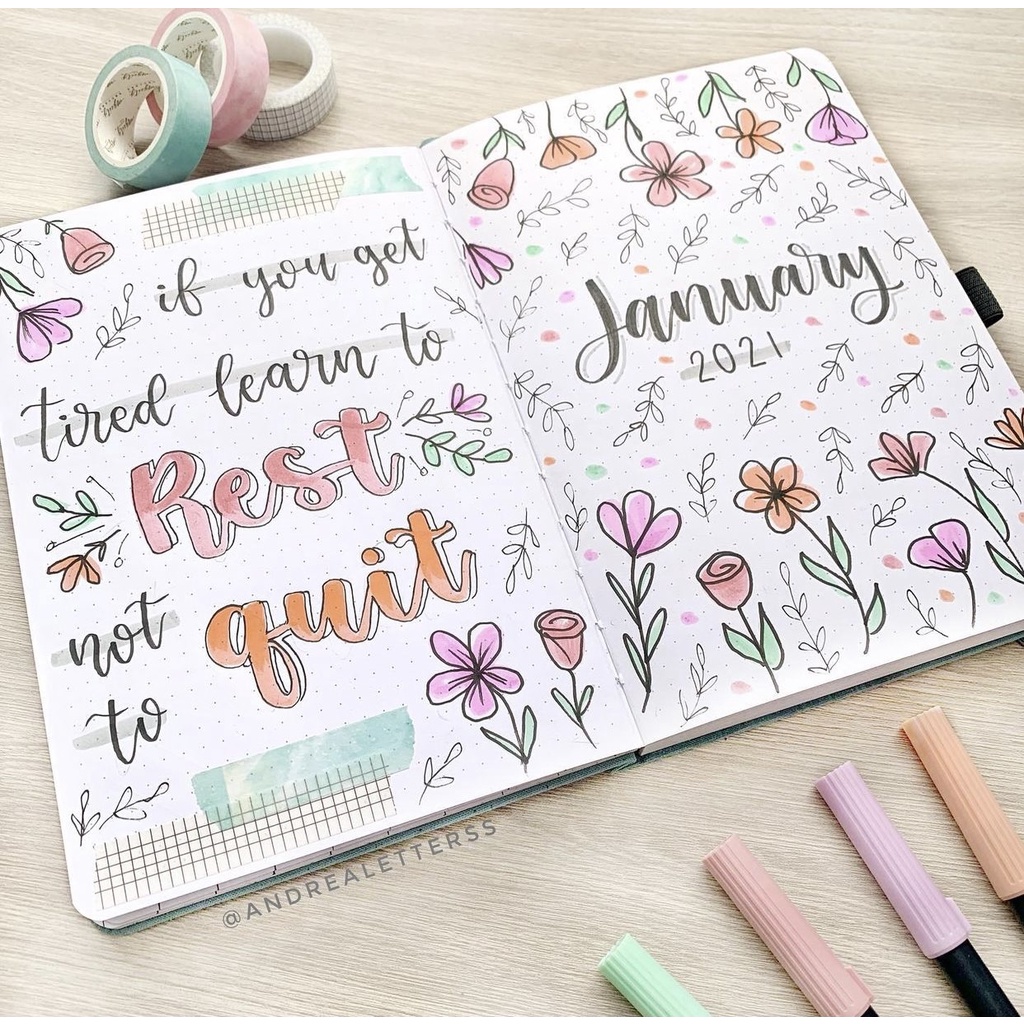 if you get
tired learn to
Rest
not quit
to
January
2021
@ANDREALETTERSS